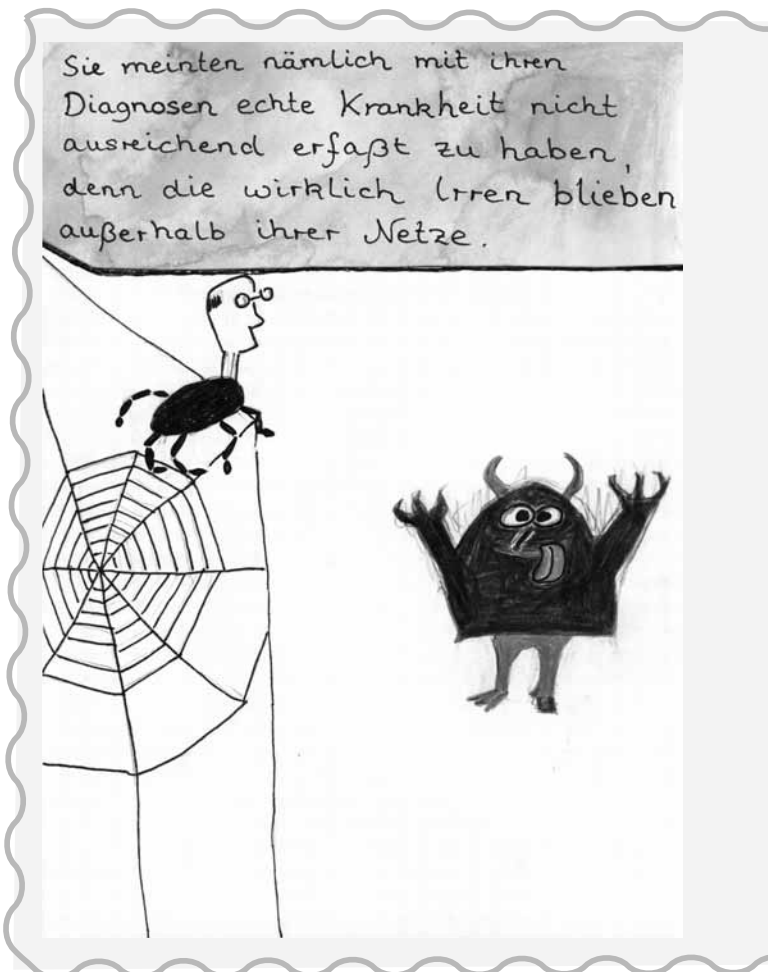 Sie meinten nämlich mit ihren
Diagnosen echte Krankheit nicht
ausreichend erfaßt zu haben,
denn die wirklich Irren blieben
außerhalb ihrer Netze.